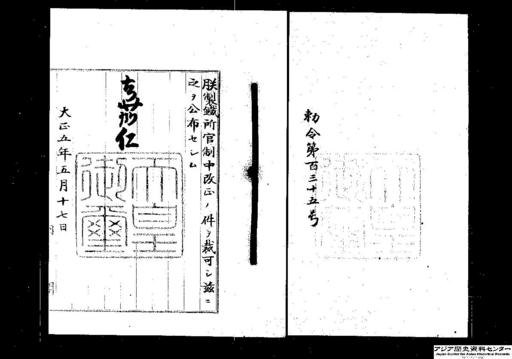 勅令第百三十五号
朕製鐵所官制中改正ノ件ヲ裁可シ玆ニ
之ヲ公布セシム
嘉仁
天皇御璽
大正五年五月十七日
アジア歴史資料センター
Japan Center for Asian Historical Records